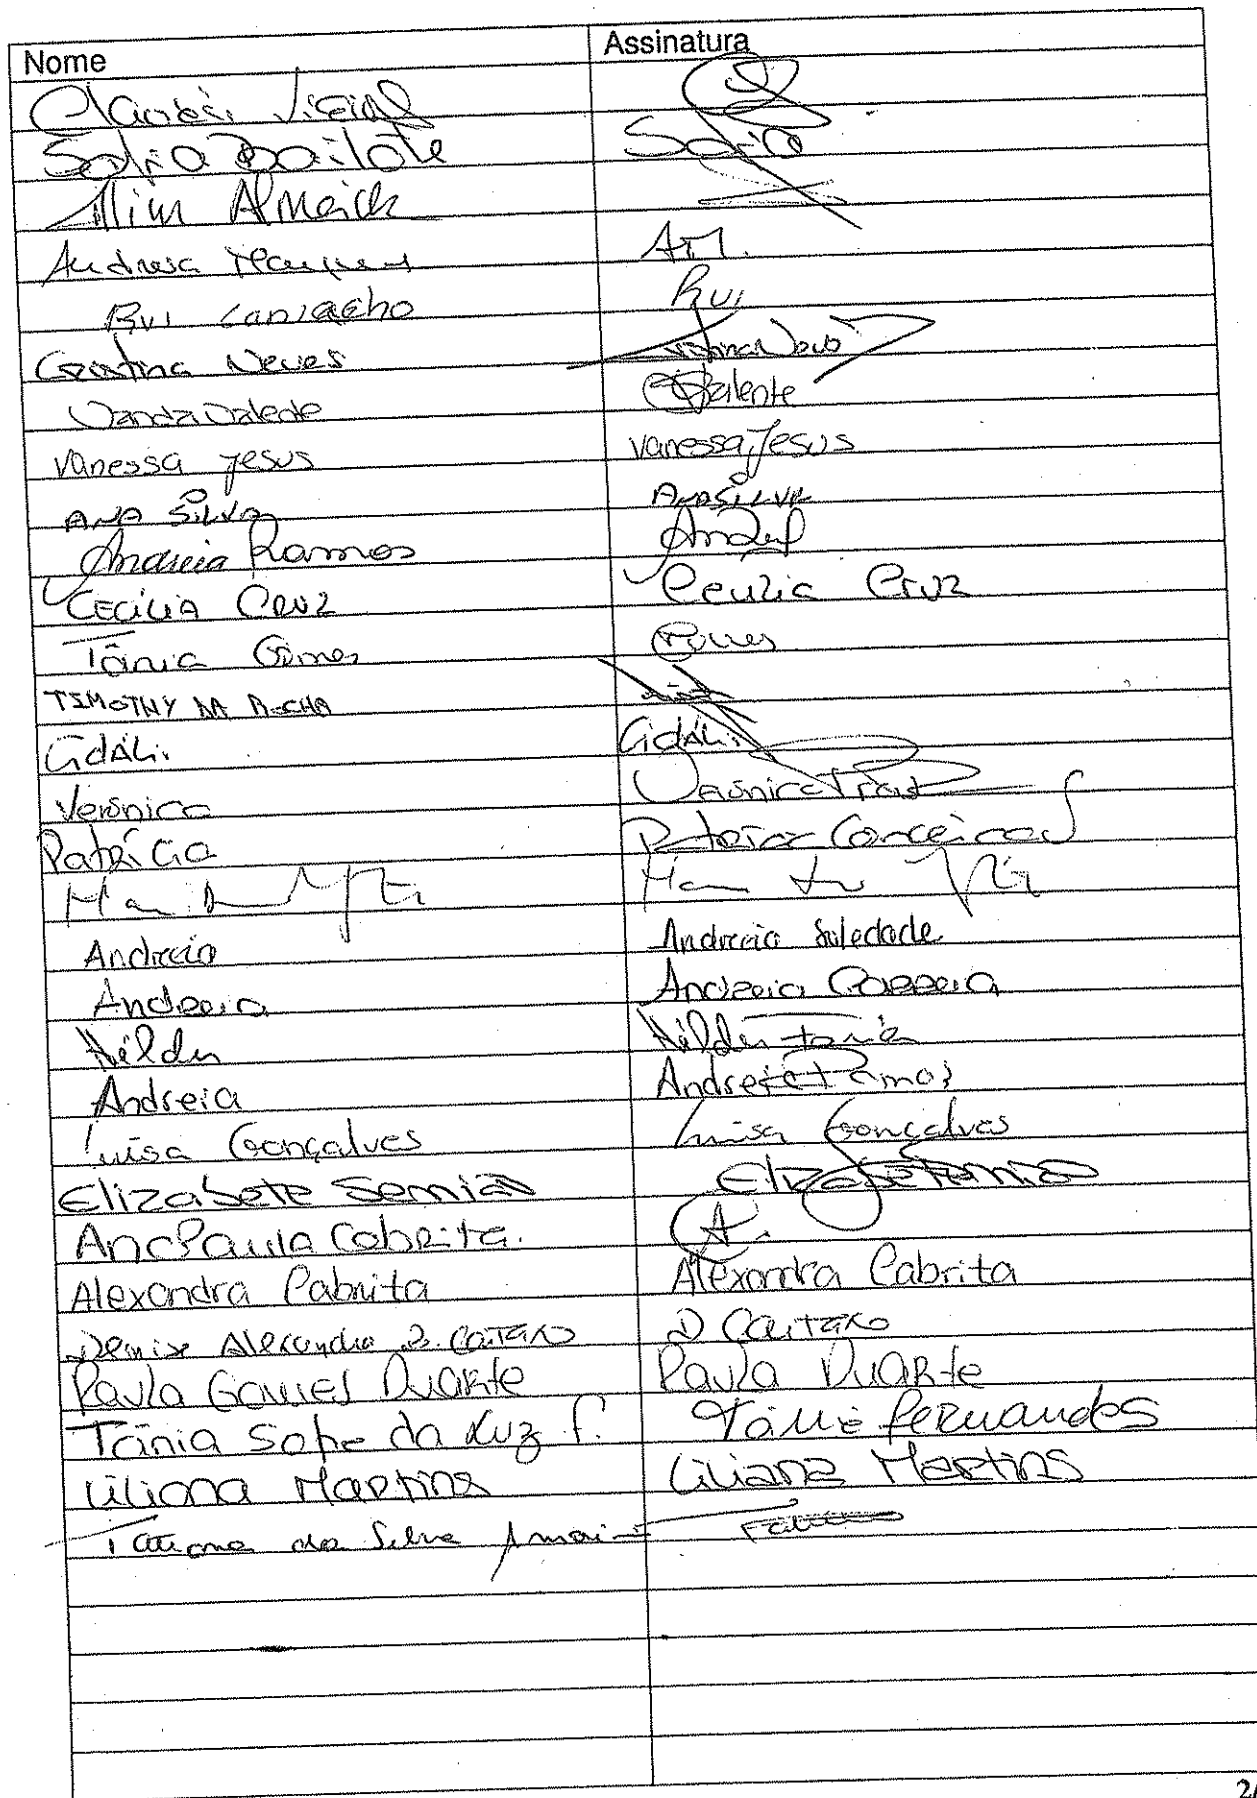 Nome Assinatura
Sofia Bailote Sofia
Almeida
Andresa Marques AM.
Rui Camacho Rui
Cristina Neves
Vanda Valente Valente
Vanessa Jesus Vanessa Jesus
ANA SILVA ANA SILVA
Andreia Ramos
CECÍLIA CRUZ Cecília Cruz
Tânia Gomes
TIMOTHY DA ROCHA
Cidáli. Cidáli.
Verónica
Patrícia Patrícia Conceição
Andreia Andreia Soledade
Andreia Andreia Correia
Hélder Hélder
Andreia Andreia Ramos
Luísa Gonçalves Luísa Gonçalves
Elizabete Semião
Ana Paula Cabrita. A.
Alexandra Cabrita Alexandra Cabrita
Denise Alexandra Caitano D Caitano
Paula Gomes Duarte Paula Duarte
Tânia Sofia da Luz F. Tânia Fernandes
Liliana Martins Liliana Martins
Tatiana da Silva
2/